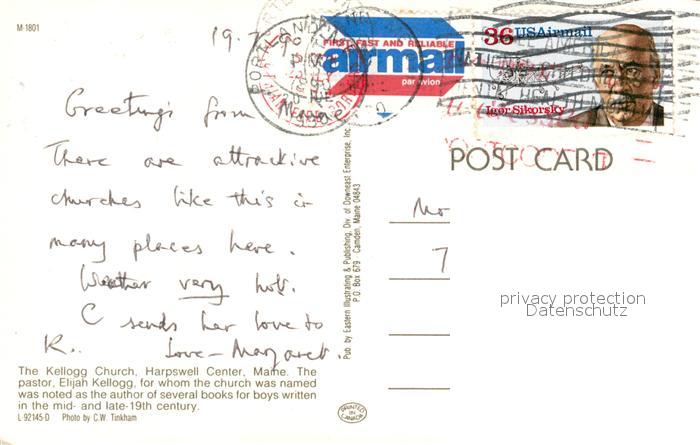 M-1801
19.7.
PORTLAND
FIRST, FAST AND RELIABLE
airmail
par avion
36 USAirmail
Igor Sikorsky
POST CARD
Greetings from
There are attractive
churches like this in
many places here.
Weather very hot.
C sends her love to
R.. Love - Margaret.
The Kellogg Church, Harpswell Center, Maine. The
pastor, Elijah Kellogg, for whom the church was named
was noted as the author of several books for boys written
in the mid- and late-19th century.
L-92145-D Photo by C.W. Tinkham
Pub by Eastern Illustrating & Publishing, Div of Downeast Enterprise, Inc.
P.O. Box 679 - Camden, Maine 04843
PRINTED IN CANADA
7
privacy protection
Datenschutz